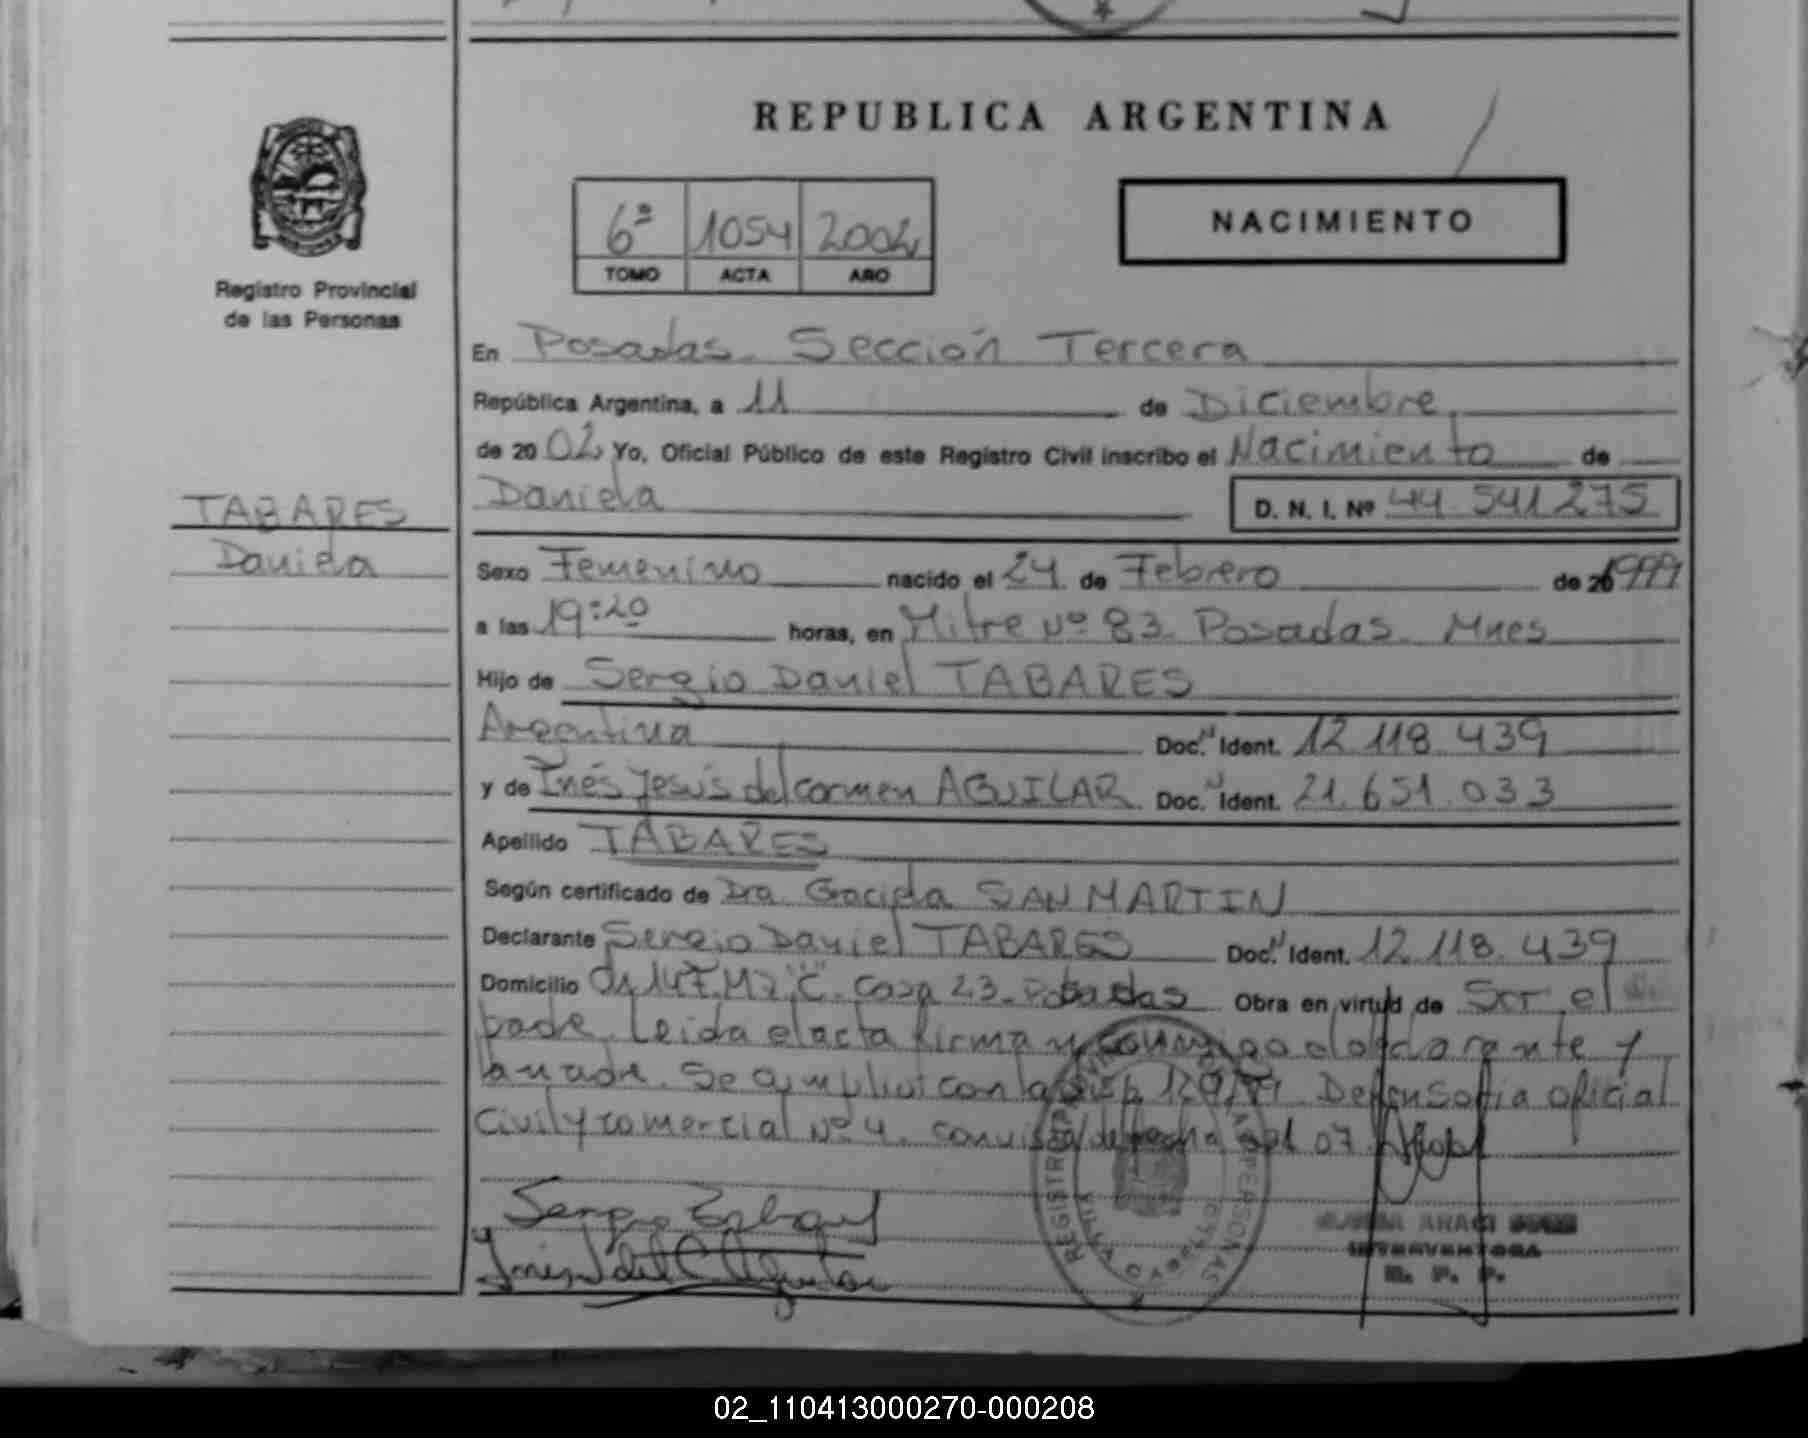 REPUBLICA ARGENTINA
6º 1054 2002
TOMO ACTA AÑO
NACIMIENTO
Registro Provincial
de las Personas
En Posadas. Sección Tercera
República Argentina, a 11 de Diciembre
de 2002 Yo, Oficial Público de este Registro Civil inscribo el Nacimiento de
Daniela D. N. I. Nº 44.541.275
TABARES
Daniela
Sexo Femenino nacido el 24 de Febrero de 1999
a las 19:20 horas, en Mitre Nº 83. Posadas. Mnes
Hijo de Sergio Daniel TABARES
Argentina Doc. Ident. 12.118.439
y de Inés Jesús del carmen AGUILAR Doc. Ident. 21.651.033
Apellido TABARES
Según certificado de Dra. Graciela SAN MARTIN
Declarante Sergio Daniel TABARES Doc. Ident. 12.118.439
Domicilio Ch 147. Mz "C". Casa 23. Posadas Obra en virtud de Ser el
padre. Leida el acta firman conmigo declarante y
la madre. Se cumplió con la Disp. 129/99. Defensoria oficial
Civil y comercial Nº 4. con vista de fecha 07.
REGISTRO PERSONAS
INTERVENTORA
R. P. P.
02_110413000270-000208